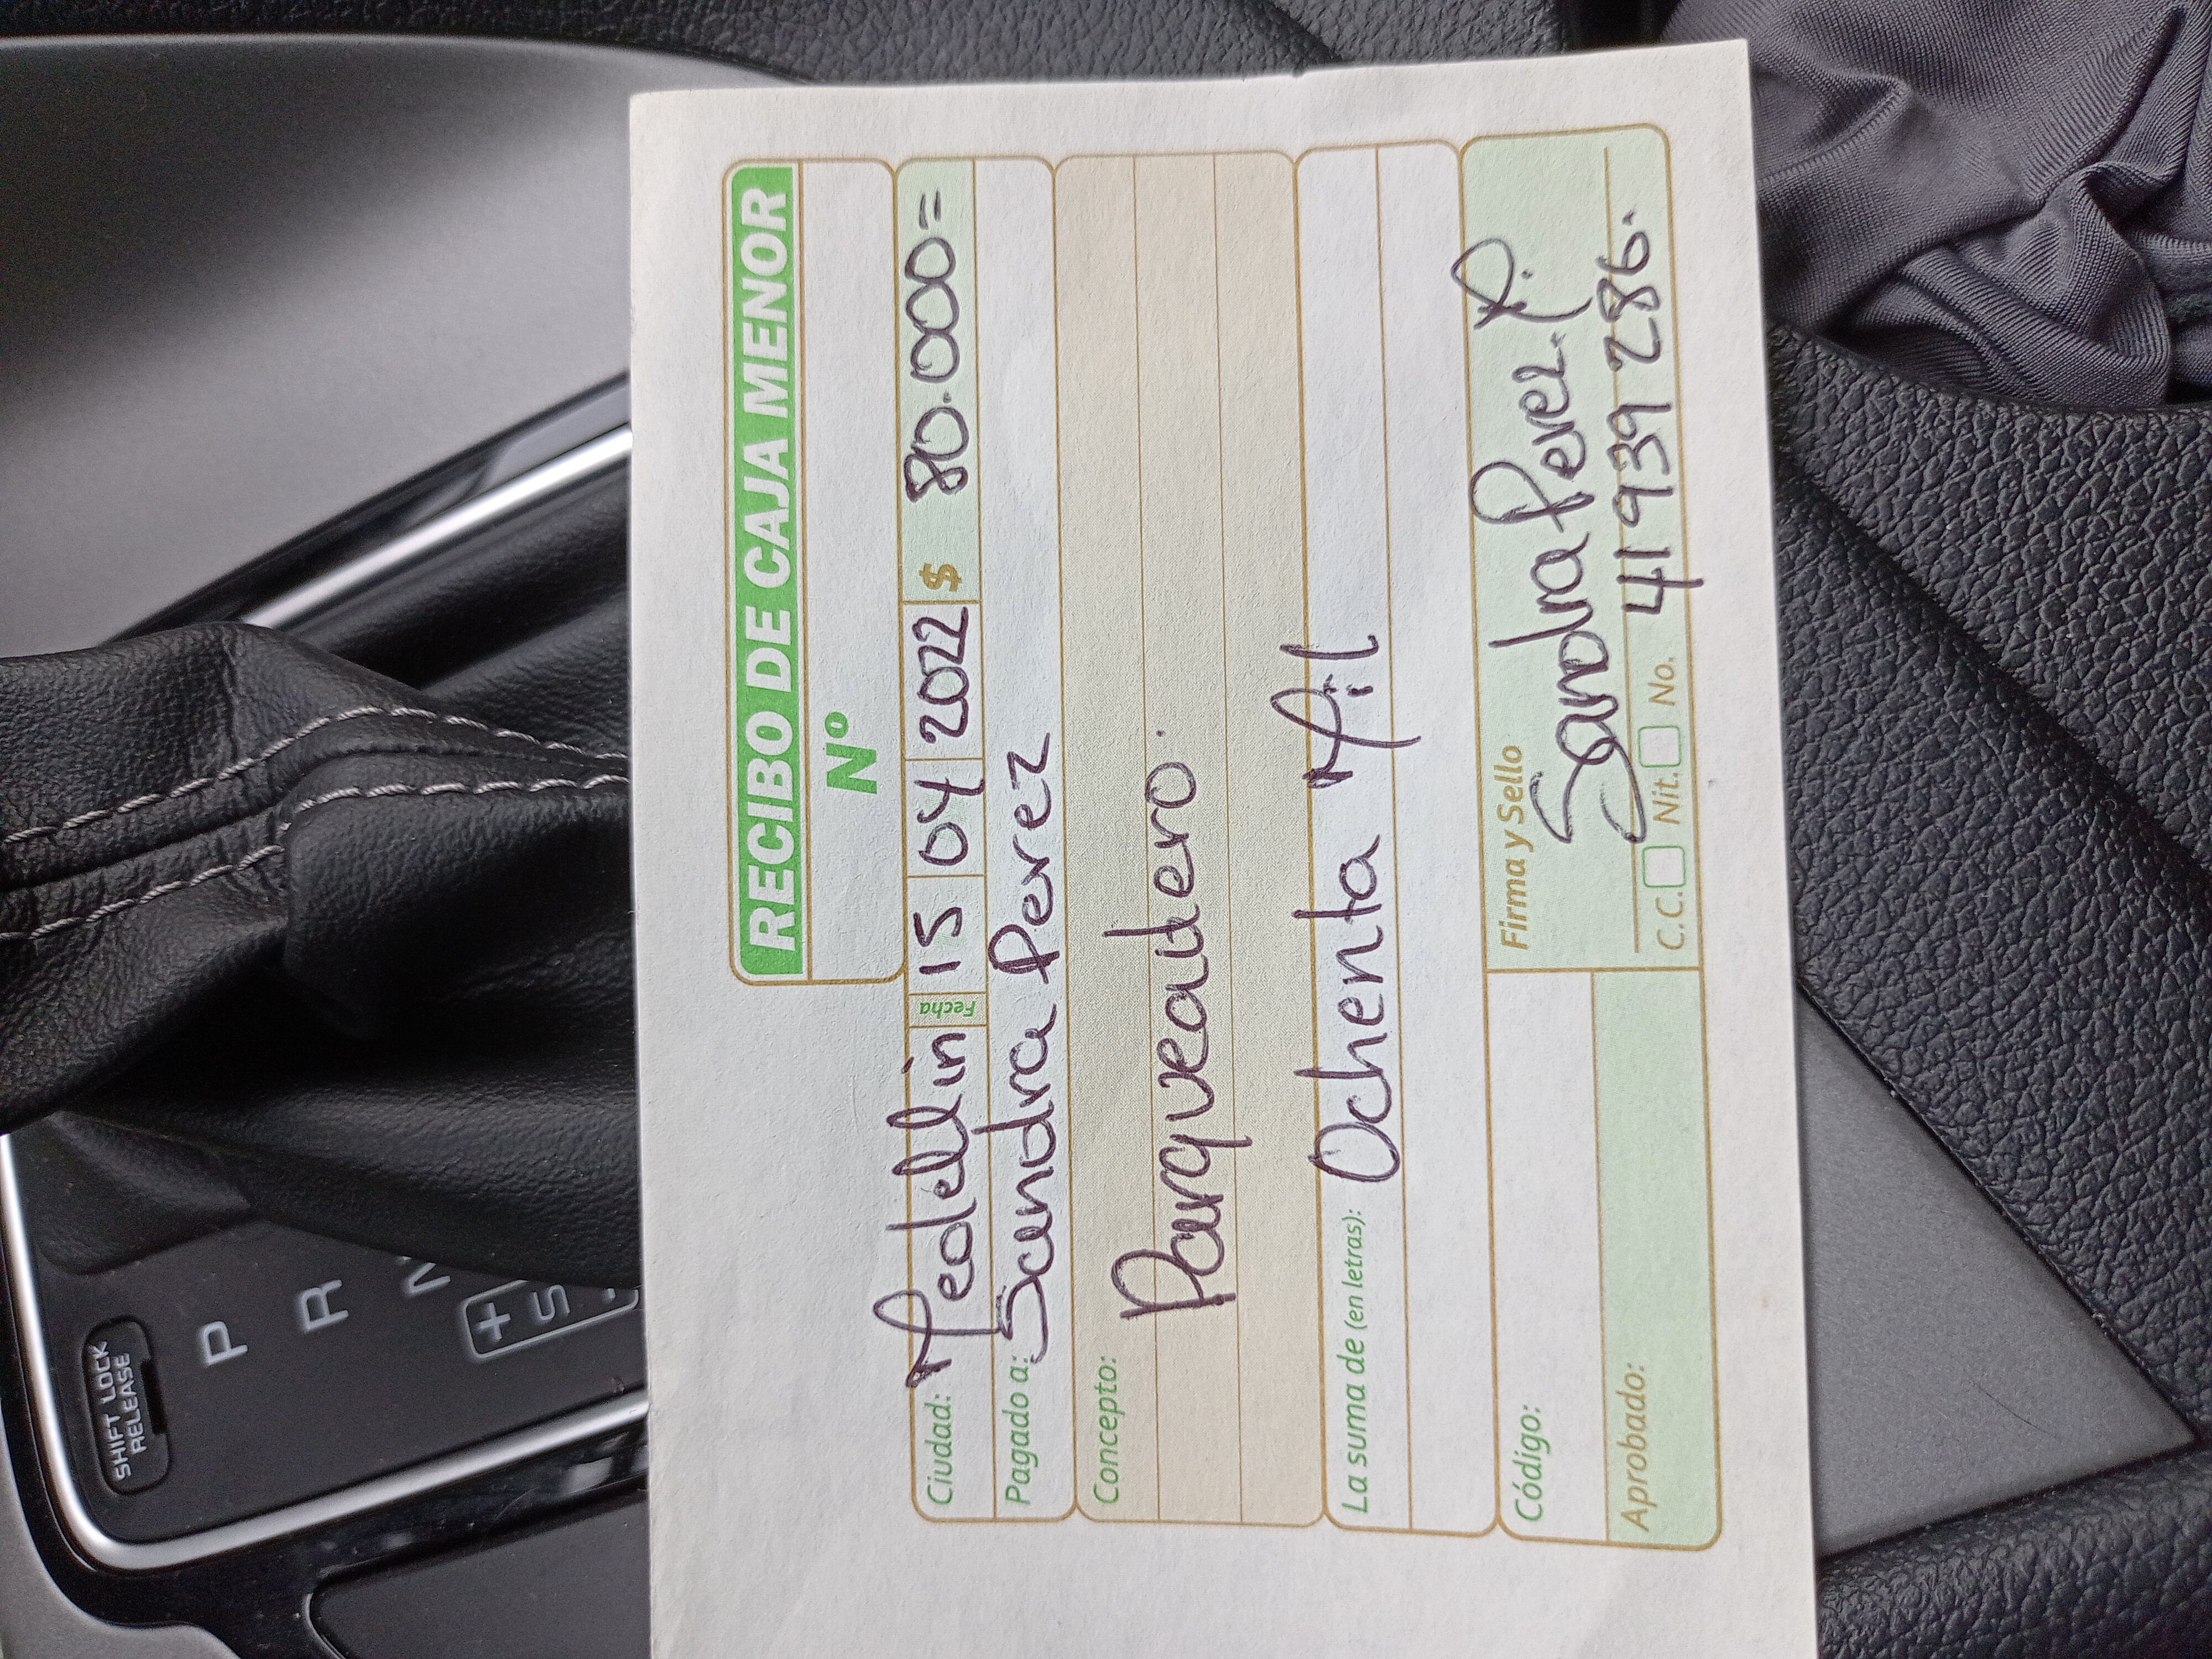 RECIBO DE CAJA MENOR
Nº
Ciudad: Medellin Fecha 15 04 2022 $ 80.000=
Pagado a: Sandra Perez
Concepto:
Parqueadero.
La suma de (en letras): Ochenta Mil
Código:
Aprobado:
Firma y Sello
Sandra Perez P.
C.C. Nit. No. 41939286.
SHIFT LOCK
RELEASE
P
R
N
+
S